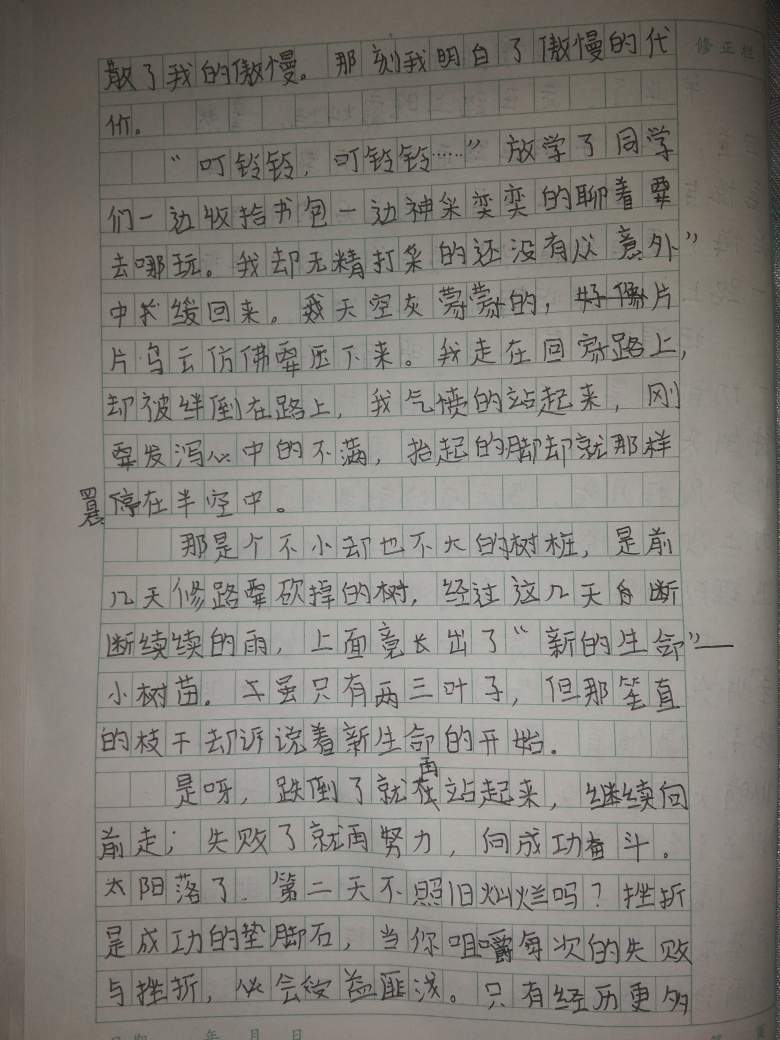 修正栏
散了我的傲慢。那刻我明白了傲慢的代
价。
“叮铃铃，叮铃铃……”放学了同学
们一边收拾书包一边神采奕奕的聊着要
去哪玩。我却无精打采的还没有从意外”
中缓回来。天空灰蒙蒙的，好像片
片乌云仿佛要压下来。我走在回家路上，
却被绊倒在路上，我气愤的站起来，刚
要发泻心中的不满，抬起的脚却就那样
停在半空中。
那是个不小却也不大的树桩，是前
几天修路要砍掉的树，经过这几天断
断续续的雨，上面竟长出了“新的生命”——
小树苗。虽只有两三叶子，但那笔直
的枝干却诉说着新生命的开始.
是呀，跌倒了就再站起来，继续向
前走；失败了就再努力，向成功奋斗.
太阳落了.第二天不照旧灿烂吗？挫折
是成功的垫脚石，当你咀嚼每次的失败
与挫折，必会受益匪浅。只有经历更多
年 月 日